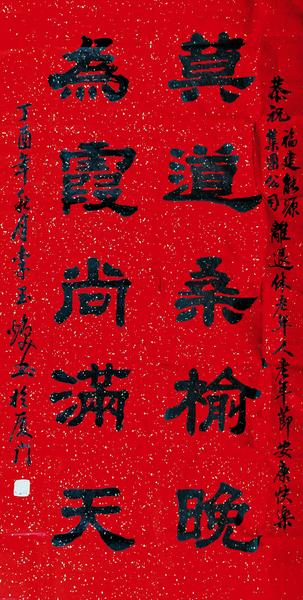 恭祝福建能源集團公司離退休老年人老年節安康快樂
莫道桑榆晚
為霞尚滿天
丁酉年秋月李玉焕书於厦门